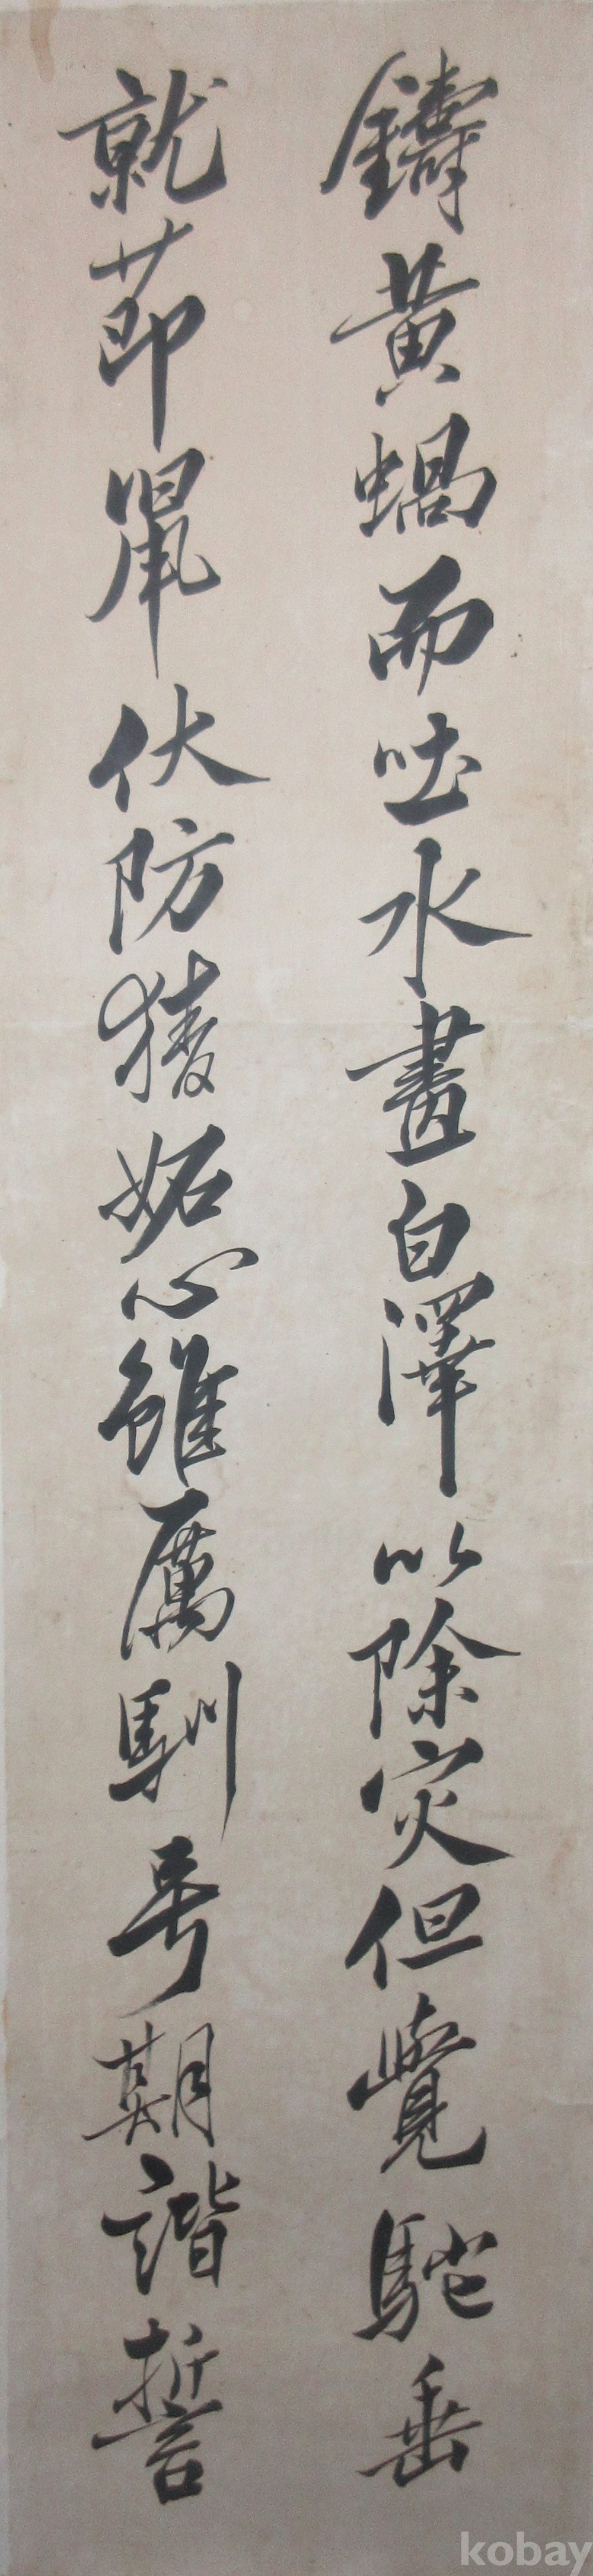 鑄黃蝸而吐水畫白澤以除灾但覺駝垂
就節鼠伏防猿妬心雖厲馴号期諧誓
kobay